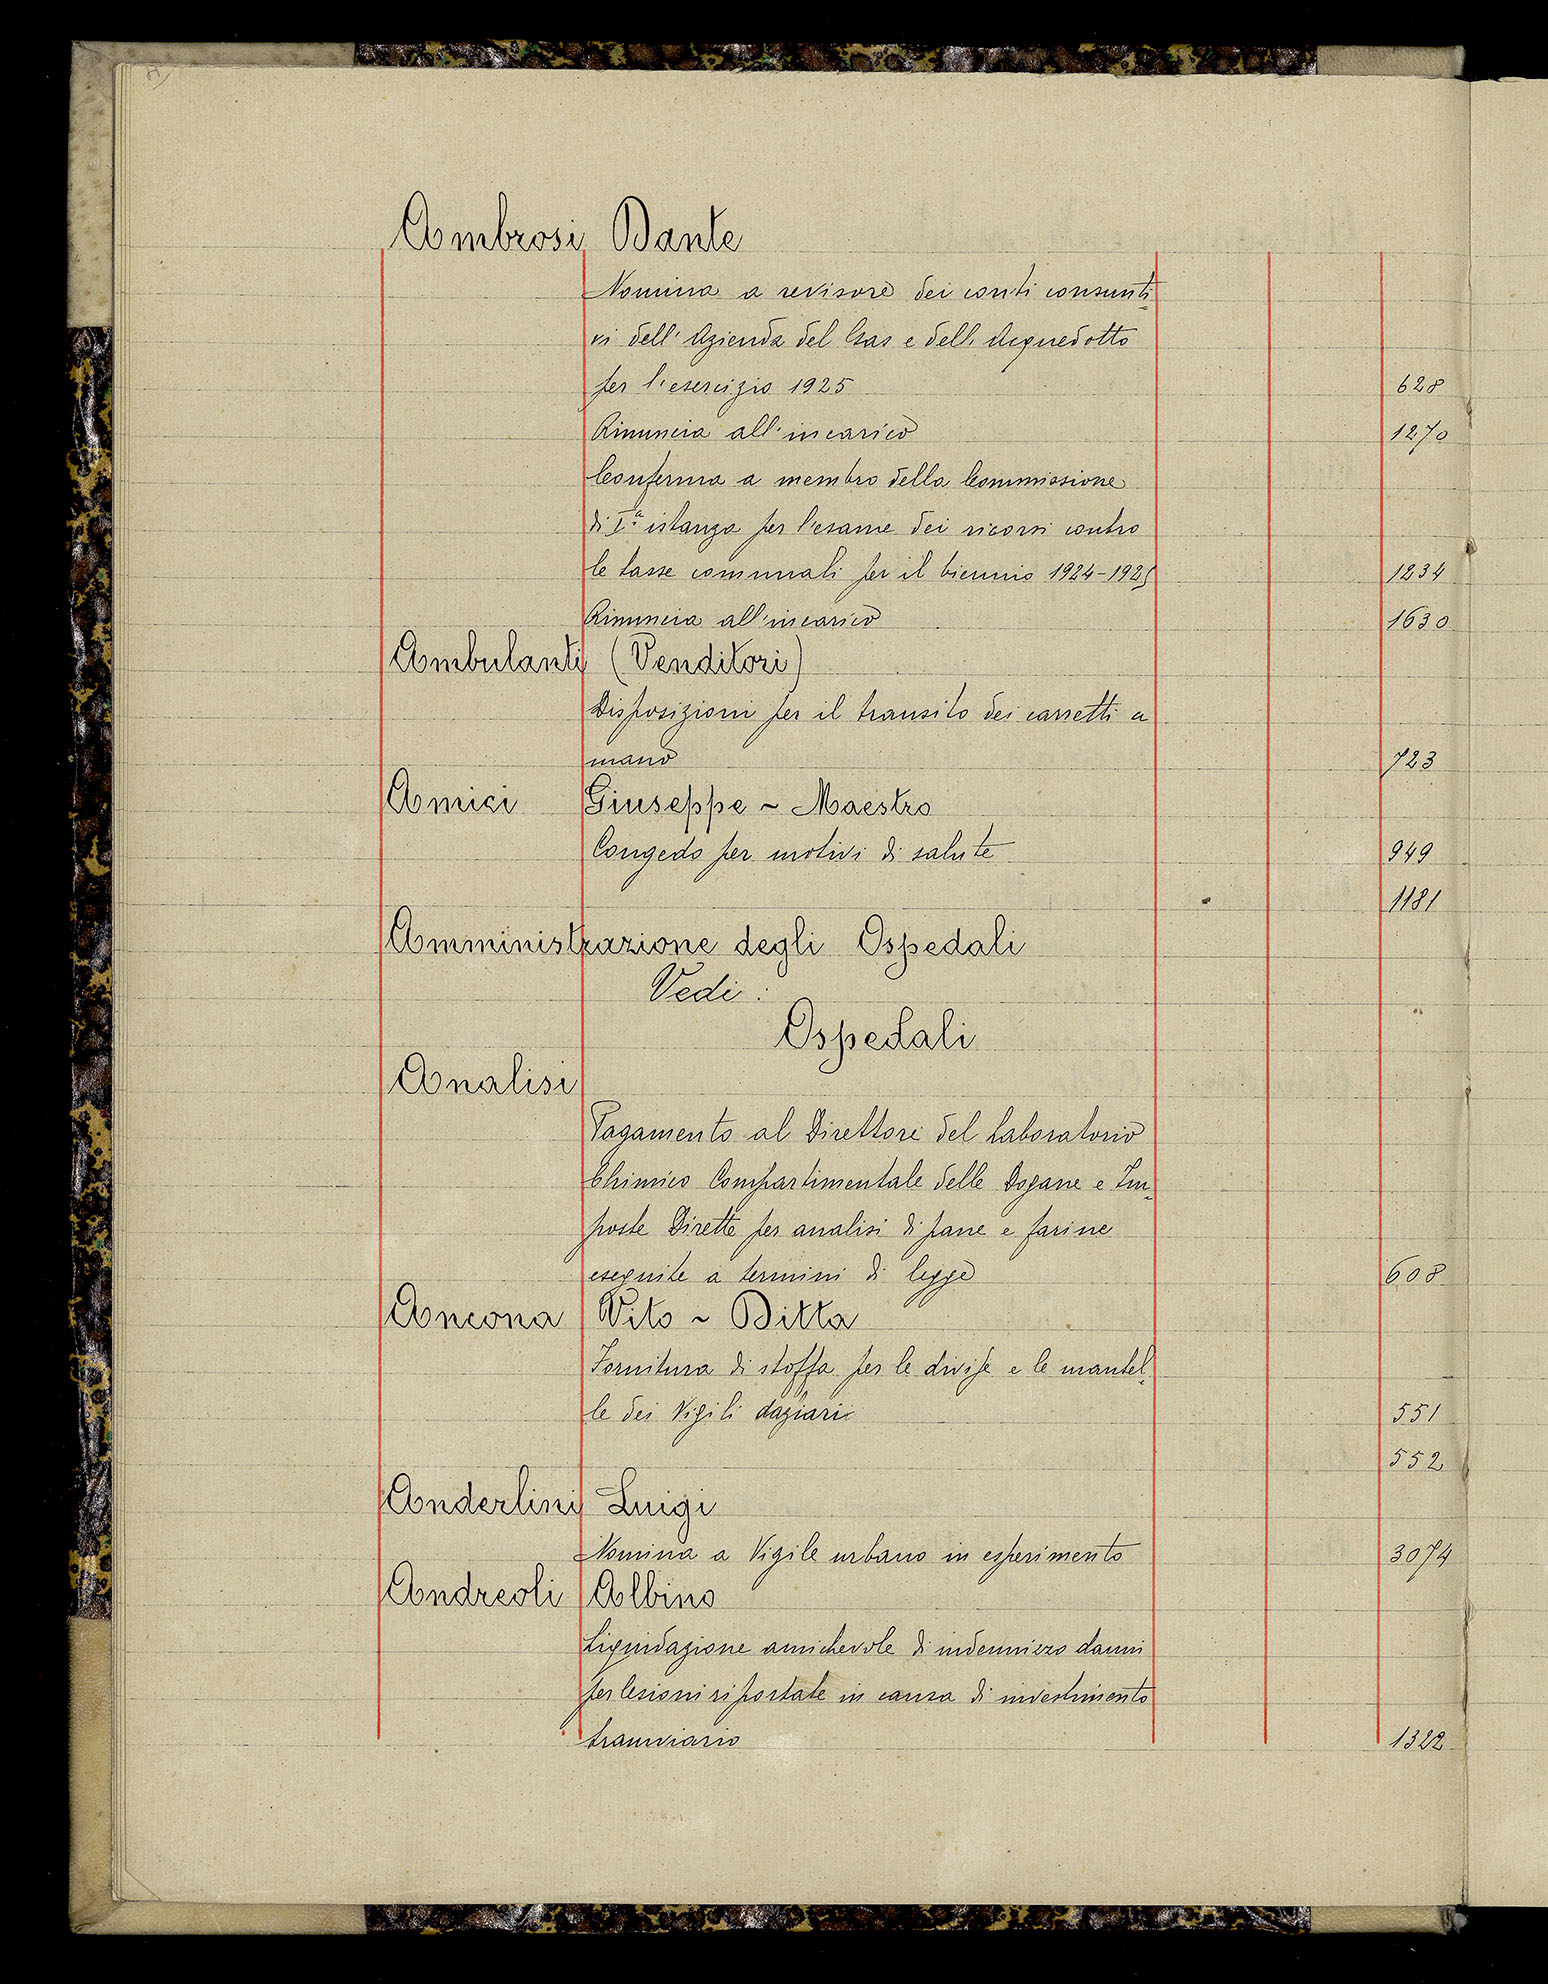 Ambrosi Dante
Nomina a revisore dei conti consunti=
vi dell'Azienda del Gas e dell'Acquedotto
per l'esercizio 1925 628
Rinuncia all'incarico 1270
Conferma a membro della Commissione
di I.ª istanza per l'esame dei ricorsi contro
le tasse comunali per il biennio 1924-1925 1234
Rinuncia all'incarico 1630
Ambulanti (Venditori)
Disposizioni per il transito dei carretti a
mano 723
Amici Giuseppe ~ Maestro
Congedo per motivi di salute 949
1181
Amministrazione degli Ospedali
Vedi :
Ospedali
Analisi
Pagamento al Direttore del Laboratorio
Chimico Compartimentale delle Dogane e Im=
poste Dirette per analisi di pane e farine
eseguite a termini di legge 608
Ancona Vito ~ Ditta
Fornitura di stoffa per le divise e le mantel=
le dei Vigili daziari 551
552
Anderlini Luigi
Nomina a Vigile urbano in esperimento 3074
Andreoli Albino
Liquidazione amichevole di indennizzo danni
per lesioni riportate in causa di investimento
tramviario 1322